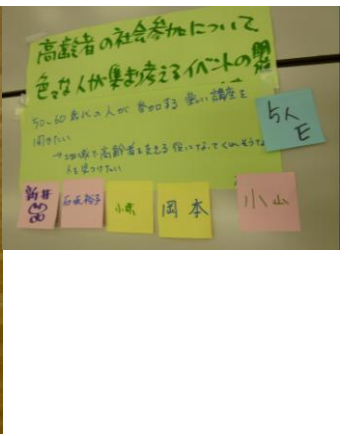 高齢者の社会参加について
色々な人が集まり考えるイベントの開催
50~60歳代の人が参加する 講座を
開きたい
→地域で高齢者を支える役になってくれそうな
人を見つけたい
5人
E
新井
石坂裕子
小泉
岡本
小山